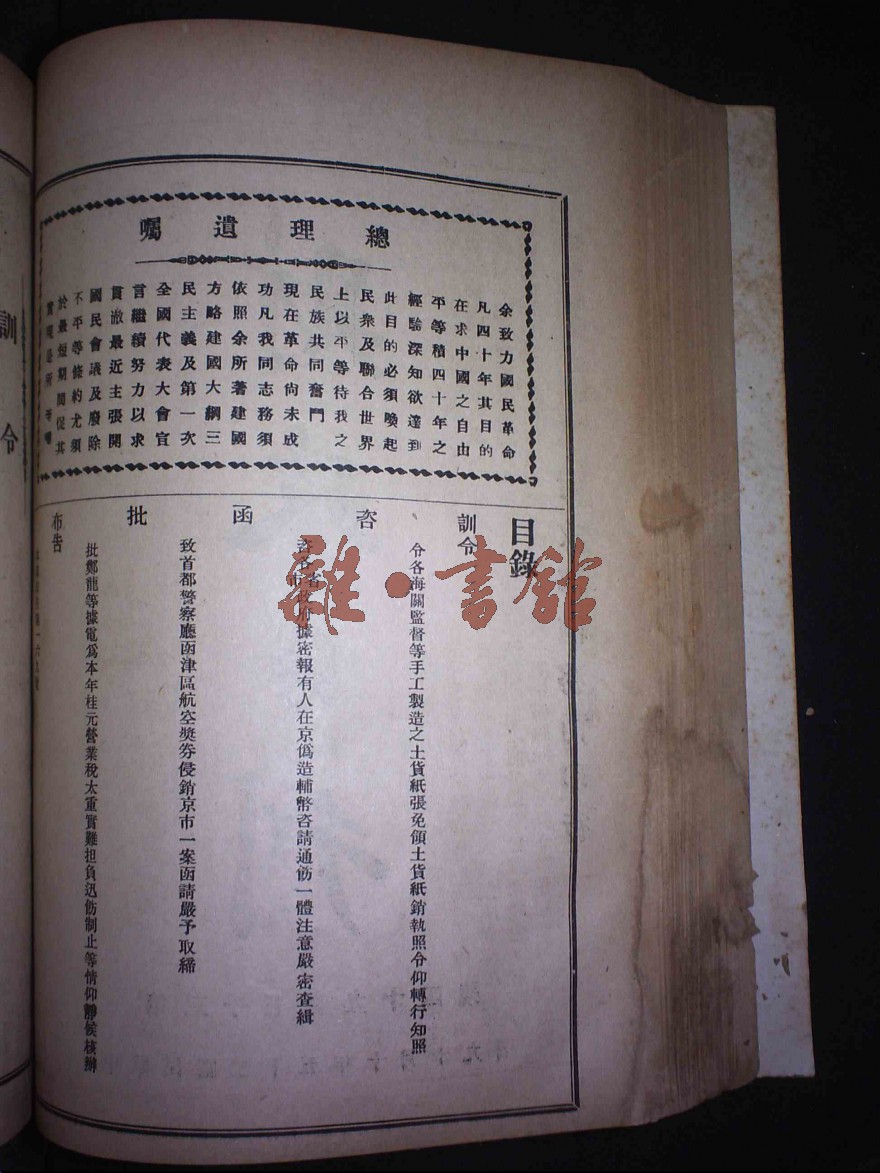 總理遺囑
余致力國民革命
凡四十年其目的
在求中國之自由
平等積四十年之
經驗深知欲達到
此目的必須喚起
民衆及聯合世界
上以平等待我之
民族共同奮鬥
現在革命尚未成
功凡我同志務須
依照余所著建國
方略建國大綱三
民主義及第一次
全國代表大會宣
言繼續努力以求
貫澈最近主張開
國民會議及廢除
不平等條約尤須
於最短期間促其
實現是所至囑
目錄
訓令
令各海關監督等手工製造之土貨紙張免領土貨紙銷執照令仰轉行知照
咨
咨各省市政府據密報有人在京僞造輔幣咨請通飭一體注意嚴密查緝
函
致首都警察廳函津區航空獎券侵銷京市一案函請嚴予取締
批
批鄭龍等據電爲本年桂元營業稅太重實難担負迅飭制止等情仰靜候核辦
布告
訓令
雜·書館